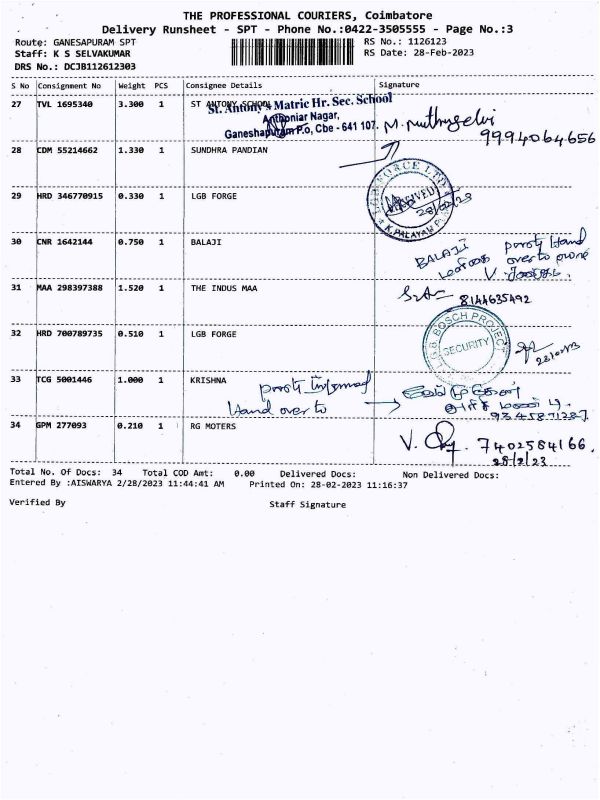 THE PROFESSIONAL COURIERS, Coimbatore
Delivery Runsheet - SPT - Phone No.:0422-3505555 - Page No.:3
Route: GANESAPURAM SPT RS No.: 1126123
Staff: K S SELVAKUMAR RS Date: 28-Feb-2023
DRS No.: DCJB112612303
S No Consignment No Weight PCS Consignee Details Signature
27 TVL 1695340 3.300 1 ST ANTONY SCHOOL
St. Antony's Matric Hr. Sec. School
Anthoniar Nagar,
Ganeshapuram P.o, Cbe - 641 107.
M. Muthuselvi
9994064656
28 CDM 55214662 1.330 1 SUNDHRA PANDIAN
29 HRD 346770915 0.330 1 LGB FORGE
RECEIVED
28/02/23
K. PALAYAM
30 CNR 1642144 0.750 1 BALAJI
BALAJI party Hand
over to
V.
31 MAA 298397388 1.520 1 THE INDUS MAA
8144635492
32 HRD 700789735 0.510 1 LGB FORGE
L.G.B. BOSCH PROJECT
SECURITY
28/02/23
33 TCG 5001446 1.000 1 KRISHNA
party Informed
Hand over to
9345871287
34 GPM 277093 0.210 1 RG MOTERS
V. 7402584166.
28/2/23
Total No. Of Docs: 34 Total COD Amt: 0.00 Delivered Docs: Non Delivered Docs:
Entered By :AISWARYA 2/28/2023 11:44:41 AM Printed On: 28-02-2023 11:16:37
Verified By Staff Signature